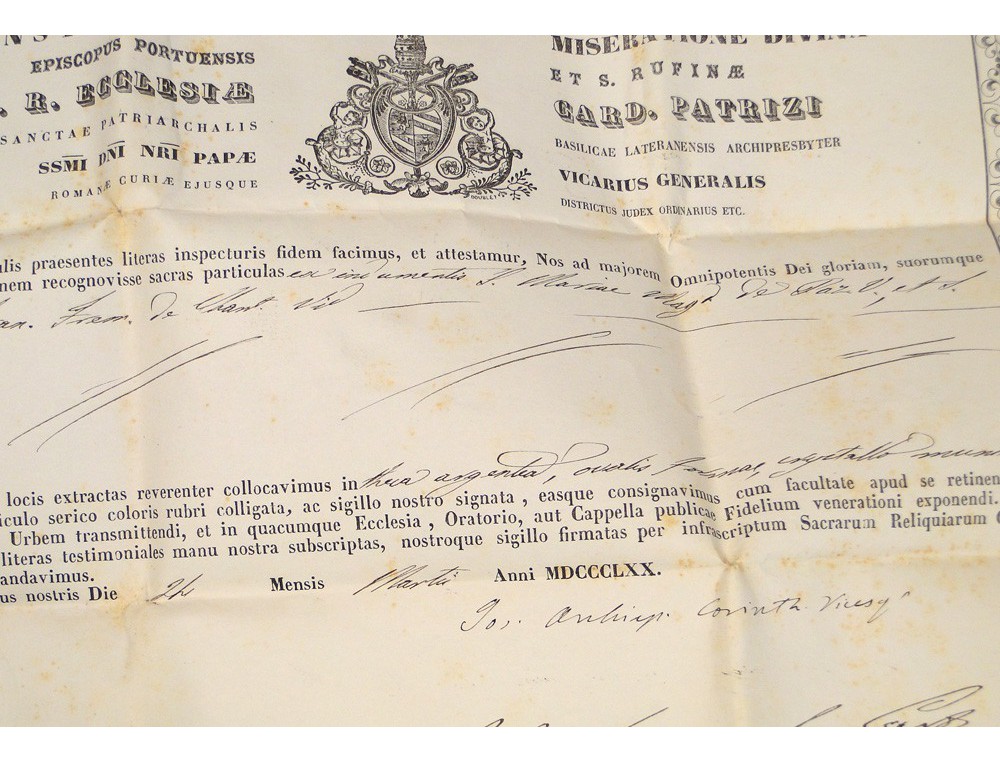 EPISCOPUS PORTUENSIS
. R. ECCLESIÆ
SANCTAE PATRIARCHALIS
SSMI DNI NRI PAPÆ
ROMANÆ CURIÆ EJUSQUE
DOUBLET
MISERATIONE DIVINA
ET S. RUFINÆ
CARD. PATRIZI
BASILICAE LATERANENSIS ARCHIPRESBYTER
VICARIUS GENERALIS
DISTRICTUS JUDEX ORDINARIUS ETC.
ulis praesentes literas inspecturis fidem facimus, et attestamur, Nos ad majorem Omnipotentis Dei gloriam, suorumque
nem recognovisse sacras particulas ex indumentis S. Mariae Magd. de Paz. V., et S.
an. Frem. de Chant. Vid
locis extractas reverenter collocavimus in theca argentea, ovalis formae, crystallo muni
iculo serico coloris rubri colligata, ac sigillo nostro signata, easque consignavimus cum facultate apud se retinen
Urbem transmittendi, et in quacumque Ecclesia, Oratorio, aut Cappella publicae Fidelium venerationi exponendi.
literas testimoniales manu nostra subscriptas, nostroque sigillo firmatas per infrascriptum Sacrarum Reliquiarum C
andavimus.
us nostris Die 24 Mensis Martii Anni MDCCCLXX.
Jos. Archiep. Corinth. Vicesg